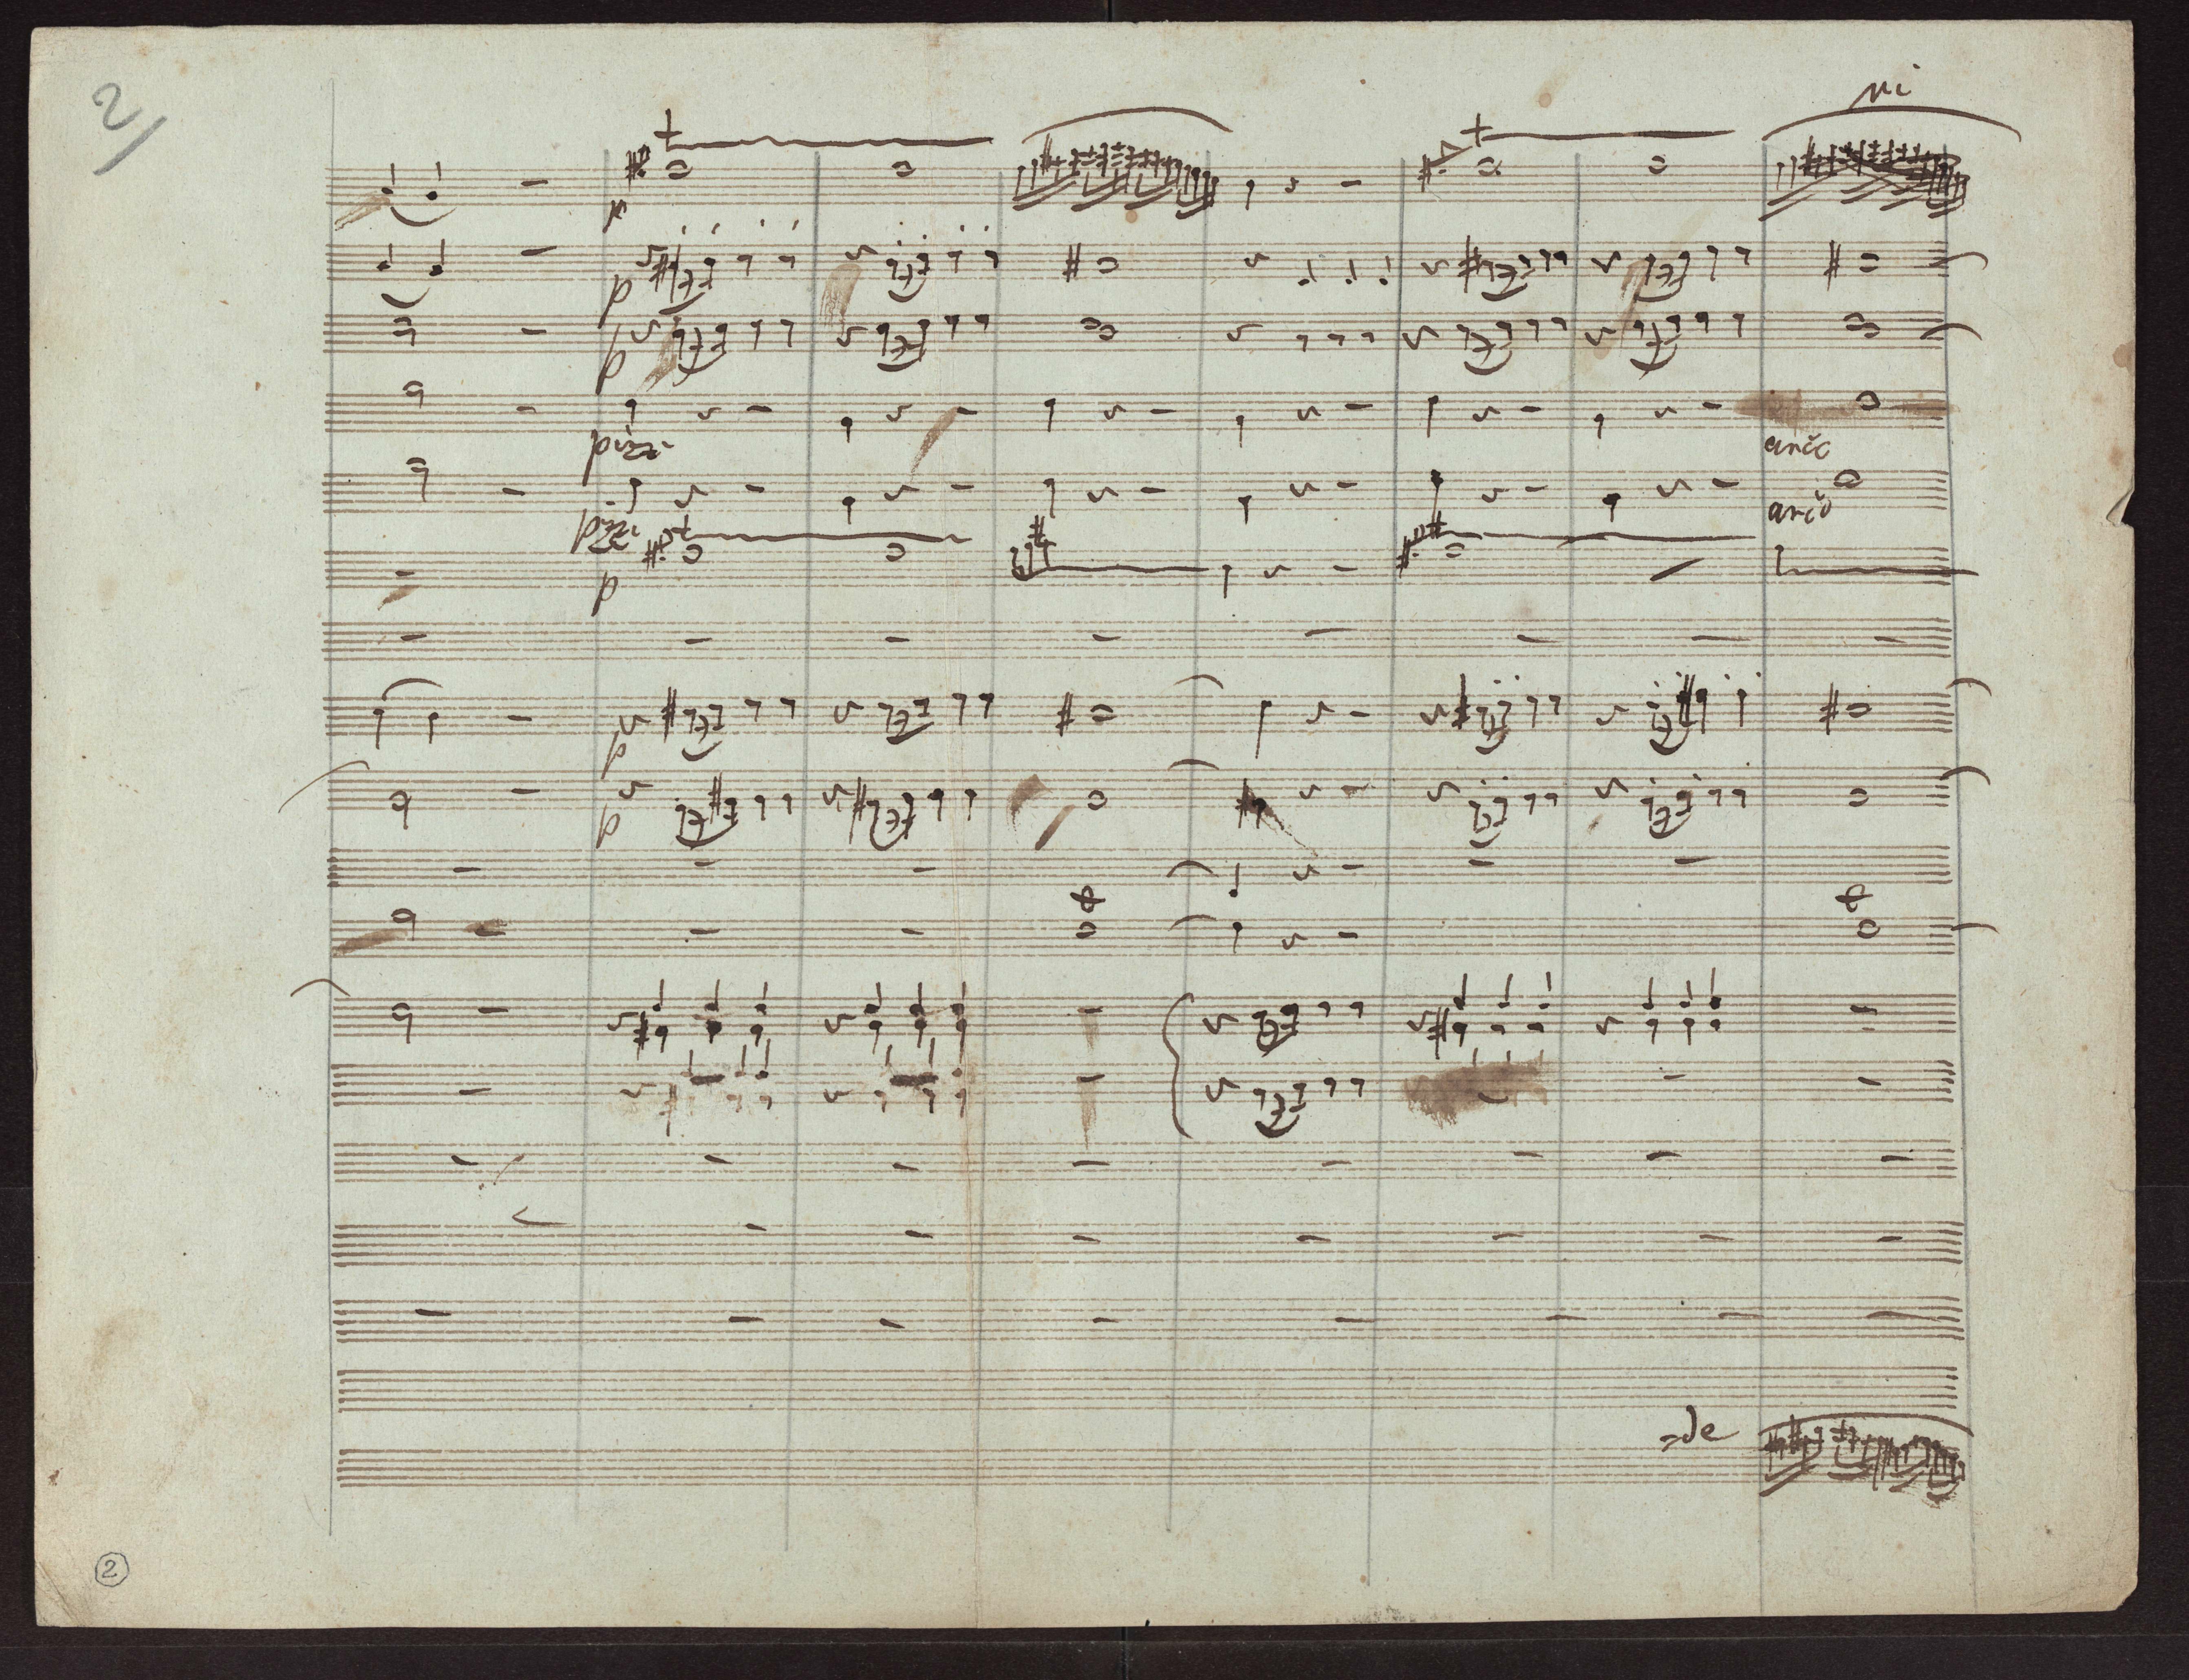 2/
vi
p
p
p
pizzi
arco
pizzi
arco
p
p
p
=de
2